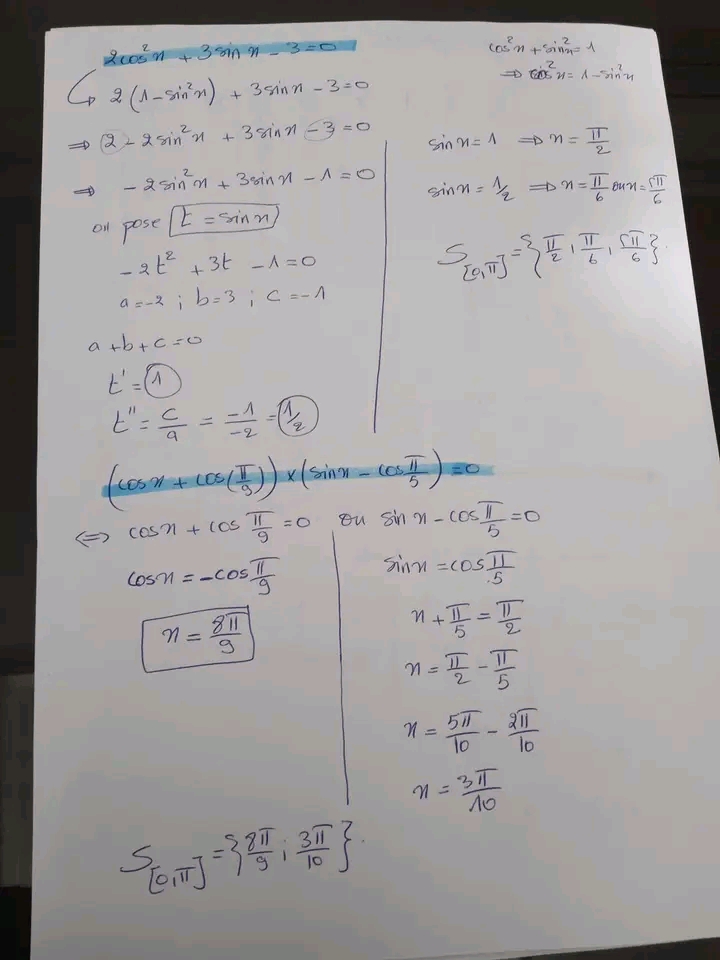 2cos²x + 3sin x - 3 = 0
2(1 - sin²x) + 3sin x - 3 = 0
⇒ 2 - 2sin²x + 3sin x - 3 = 0
⇒ - 2sin²x + 3sin x - 1 = 0
on pose t = sin x
- 2t² + 3t - 1 = 0
a = -2 ; b = 3 ; c = -1
a + b + c = 0
t' = 1
t'' = c/a = -1/-2 = 1/2
cos²x + sin²x = 1
⇒ cos²x = 1 - sin²x
sin x = 1 ⇒ x = π/2
sin x = 1/2 ⇒ x = π/6 ou x = 5π/6
S[0,π] = {π/2 ; π/6 ; 5π/6}.
(cos x + cos(π/9)) × (sin x - cos π/5) = 0
⇔ cos x + cos π/9 = 0 ou sin x - cos π/5 = 0
cos x = - cos π/9
x = 8π/9
sin x = cos π/5
x + π/5 = π/2
x = π/2 - π/5
x = 5π/10 - 2π/10
x = 3π/10
S[0,π] = {8π/9 ; 3π/10}.